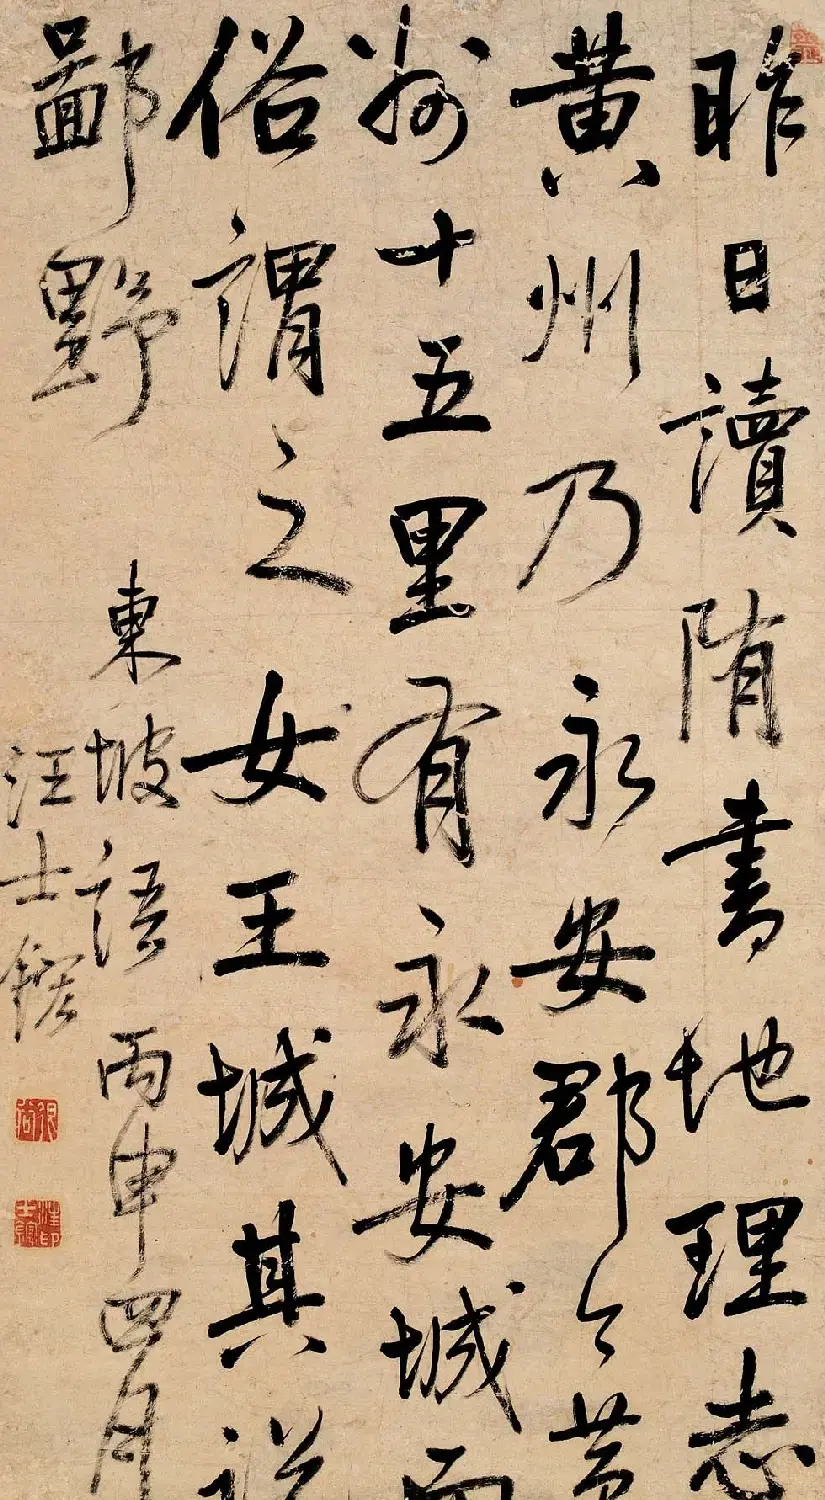 昨日讀隋書地理志
黃州乃永安郡今黃
州十五里有永安城而
俗謂之女王城其説
鄙野
東坡語丙申四月
汪士鋐